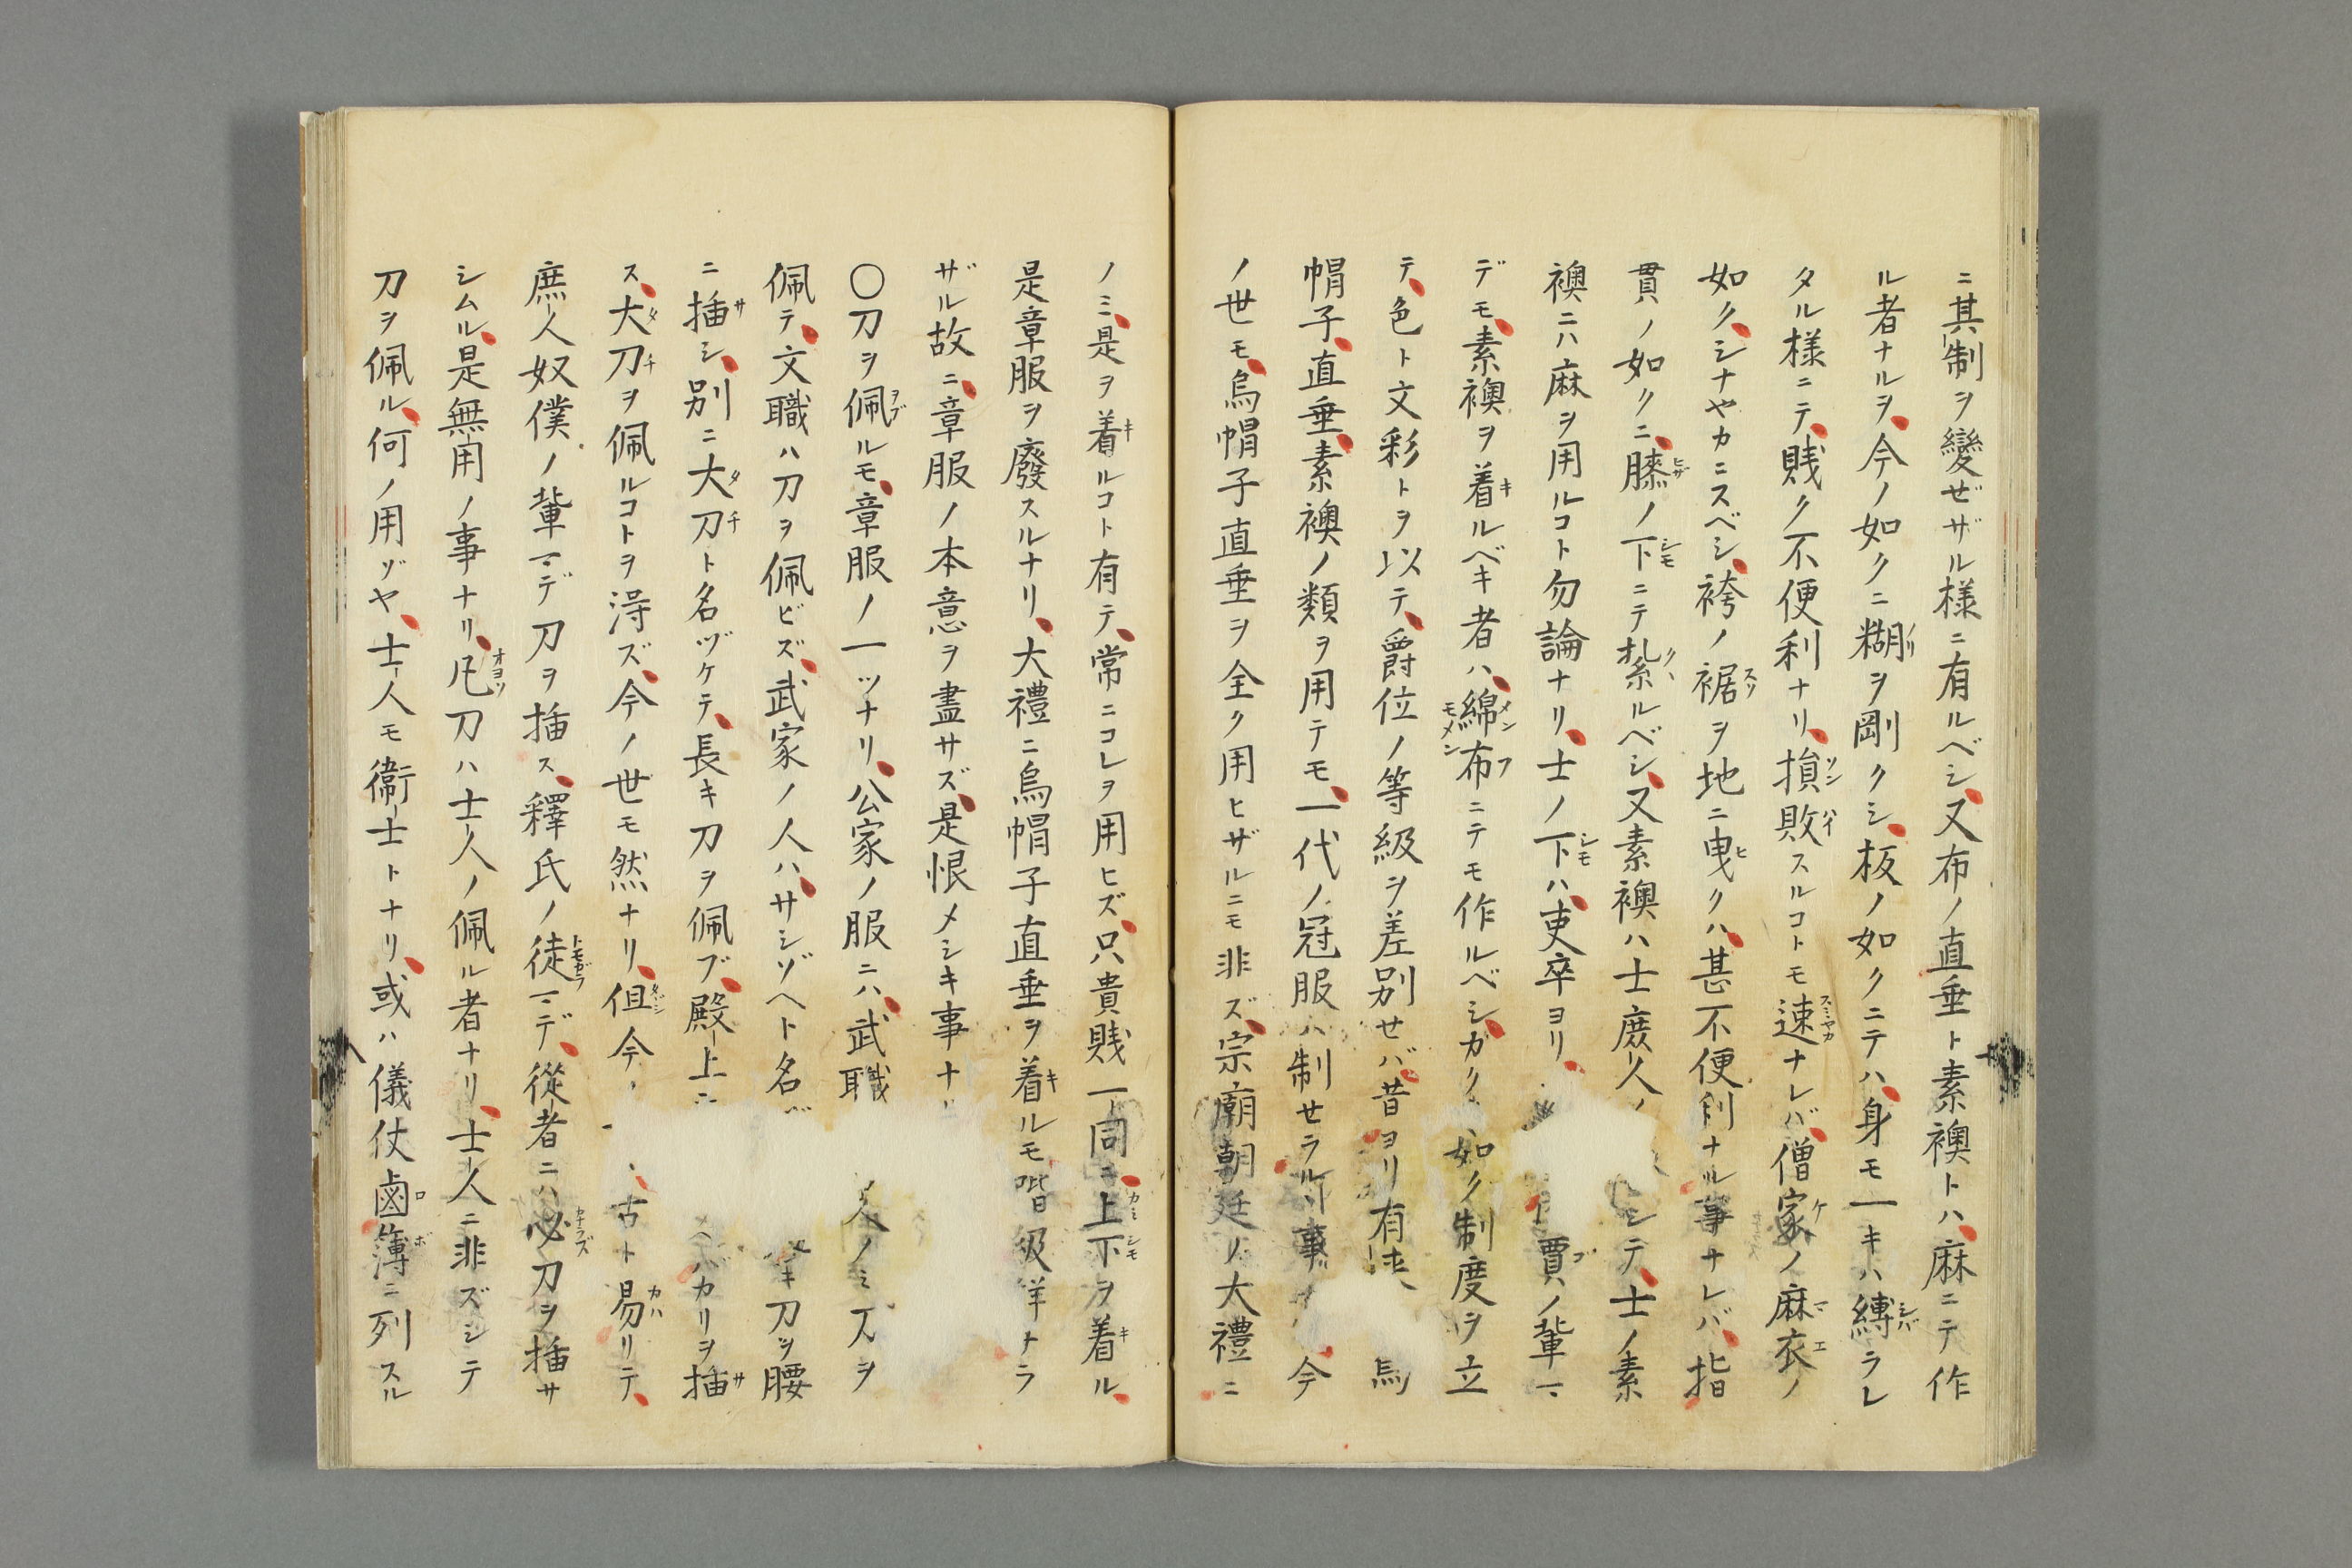 ニ其制ヲ變ゼザル様ニ有ルベシ、又布ノ直垂ト素襖トハ、麻ニテ作
ル者ナルヲ、今ノ如クニ糊ヲ剛クシ、板ノ如クニテハ、身モ一キハ縛ラレ
タル様ニテ、賎ク不便利ナリ、損敗スルコトモ速ナレバ、僧家ノ麻衣ノ
如ク、シナヤカニスベシ、袴ノ裾ヲ地ニ曳クハ、甚不便利ナル事ナレバ、指
貫ノ如クニ、膝ノ下ニテ紮ルベシ、又素襖ハ士庶人ノ シテ、士ノ素
襖ニハ麻ヲ用ルコト勿論ナリ、士ノ下ハ、吏卒ヨリ、 賈ノ輩マ
デモ、素襖ヲ着ルベキ者ハ、綿布ニテモ作ルベシ、カク 如ク制度ヲ立
テ、色ト文彩トヲ以テ、爵位ノ等級ヲ差別セバ、昔ヨリ有 烏
帽子、直垂、素襖ノ類ヲ用テモ、一代ノ冠服ハ制セラル 事 今
ノ世モ、烏帽子直垂ヲ全ク用ヒザルニモ非ズ、宗廟朝廷ノ大禮ニ
ノミ、是ヲ着ルコト有テ、常ニコレヲ用ヒズ、只貴賎一同ニ、上下ヲ着ル、
是章服ヲ廢スルナリ、大禮ニ烏帽子直垂ヲ着ルモ階級詳ナラ
ザル故ニ、章服ノ本意ヲ盡サズ、是恨メシキ事ナ
〇刀ヲ佩ルモ、章服ノ一ツナリ、公家ノ服ニハ、武職 人ノミ刀ヲ
佩テ、文職ハ刀ヲ佩ビズ、武家ノ人ハ、サシゾヘト名 キ刀ヲ腰
ニ插シ、別ニ大刀ト名ヅケテ、長キ刀ヲ佩ブ、殿上ニ バカリヲ插
ス、大刀ヲ佩ルコトヲ得ズ、今ノ世モ然ナリ、但今 古ト易リテ、
庶人奴僕ノ輩マデ刀ヲ插ス、釋氏ノ徒マデ、從者ニハ必刀ヲ插サ
シムル、是無用ノ事ナリ、凡刀ハ士人ノ佩ル者ナリ、士人ニ非ズシテ
刀ヲ佩ル、何ノ用ゾヤ、士人モ衞士トナリ、或ハ儀仗鹵簿ニ列スル